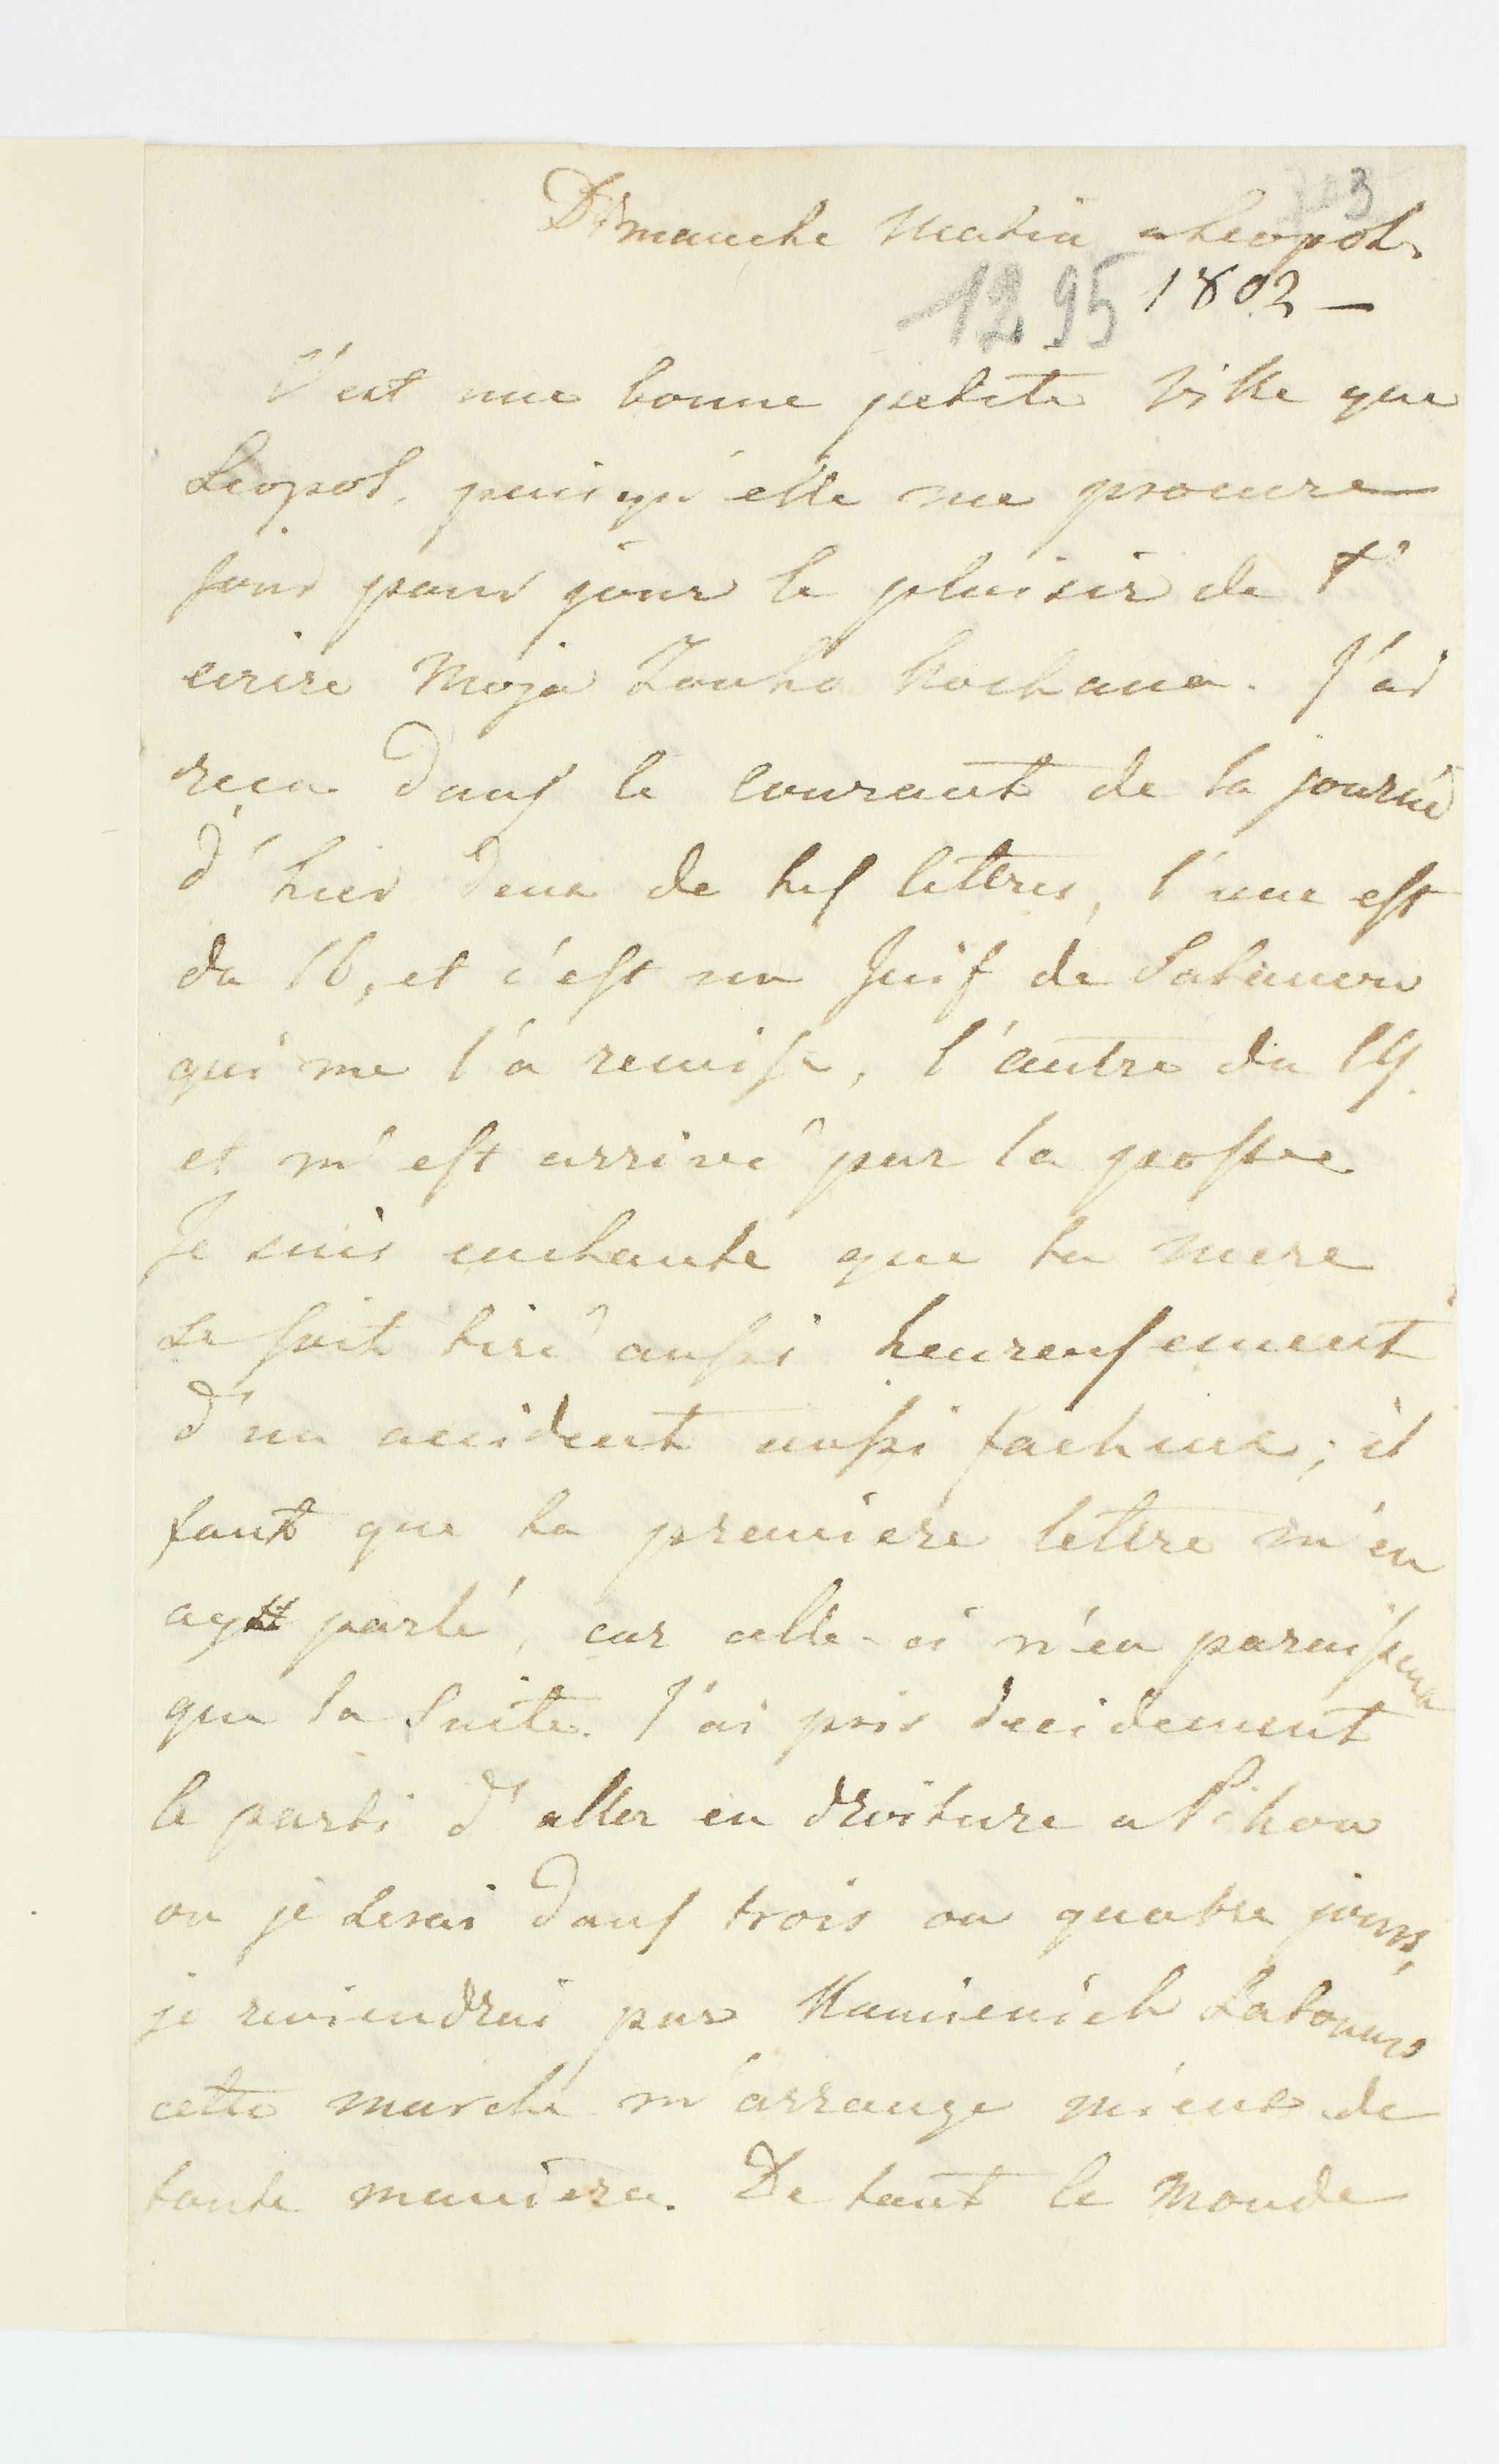 703
Dimanche Matin a Leopol.
1295 1802 —
C'est une bonne petite ville que
Leopol, puisqu'elle me procure
jour pour jour le plaisir de t'
ecrire Moja Zonko Kochana. J'ai
reçu dans le courant de la journé
d'hier deux de tes lettres, l'une est
du 16, et c'est un Juif de
qui me l'a remise, l'autre du 19
et m'est arrivé par la poste
Je suis enchanté que ta mere
se soit tiré aussi heureusement
d'un accident aussi facheux; il
faut que ta premiere lettre m'en
ayt parlé, car celle-ci n'en
que la suite. J'ai pris decidement
le parti d'aller en droiture a
ou je serai dans trois ou quatre jours,
je reviendrai par
cette marche m'arrange mieux de
toute maniere. De tout le monde